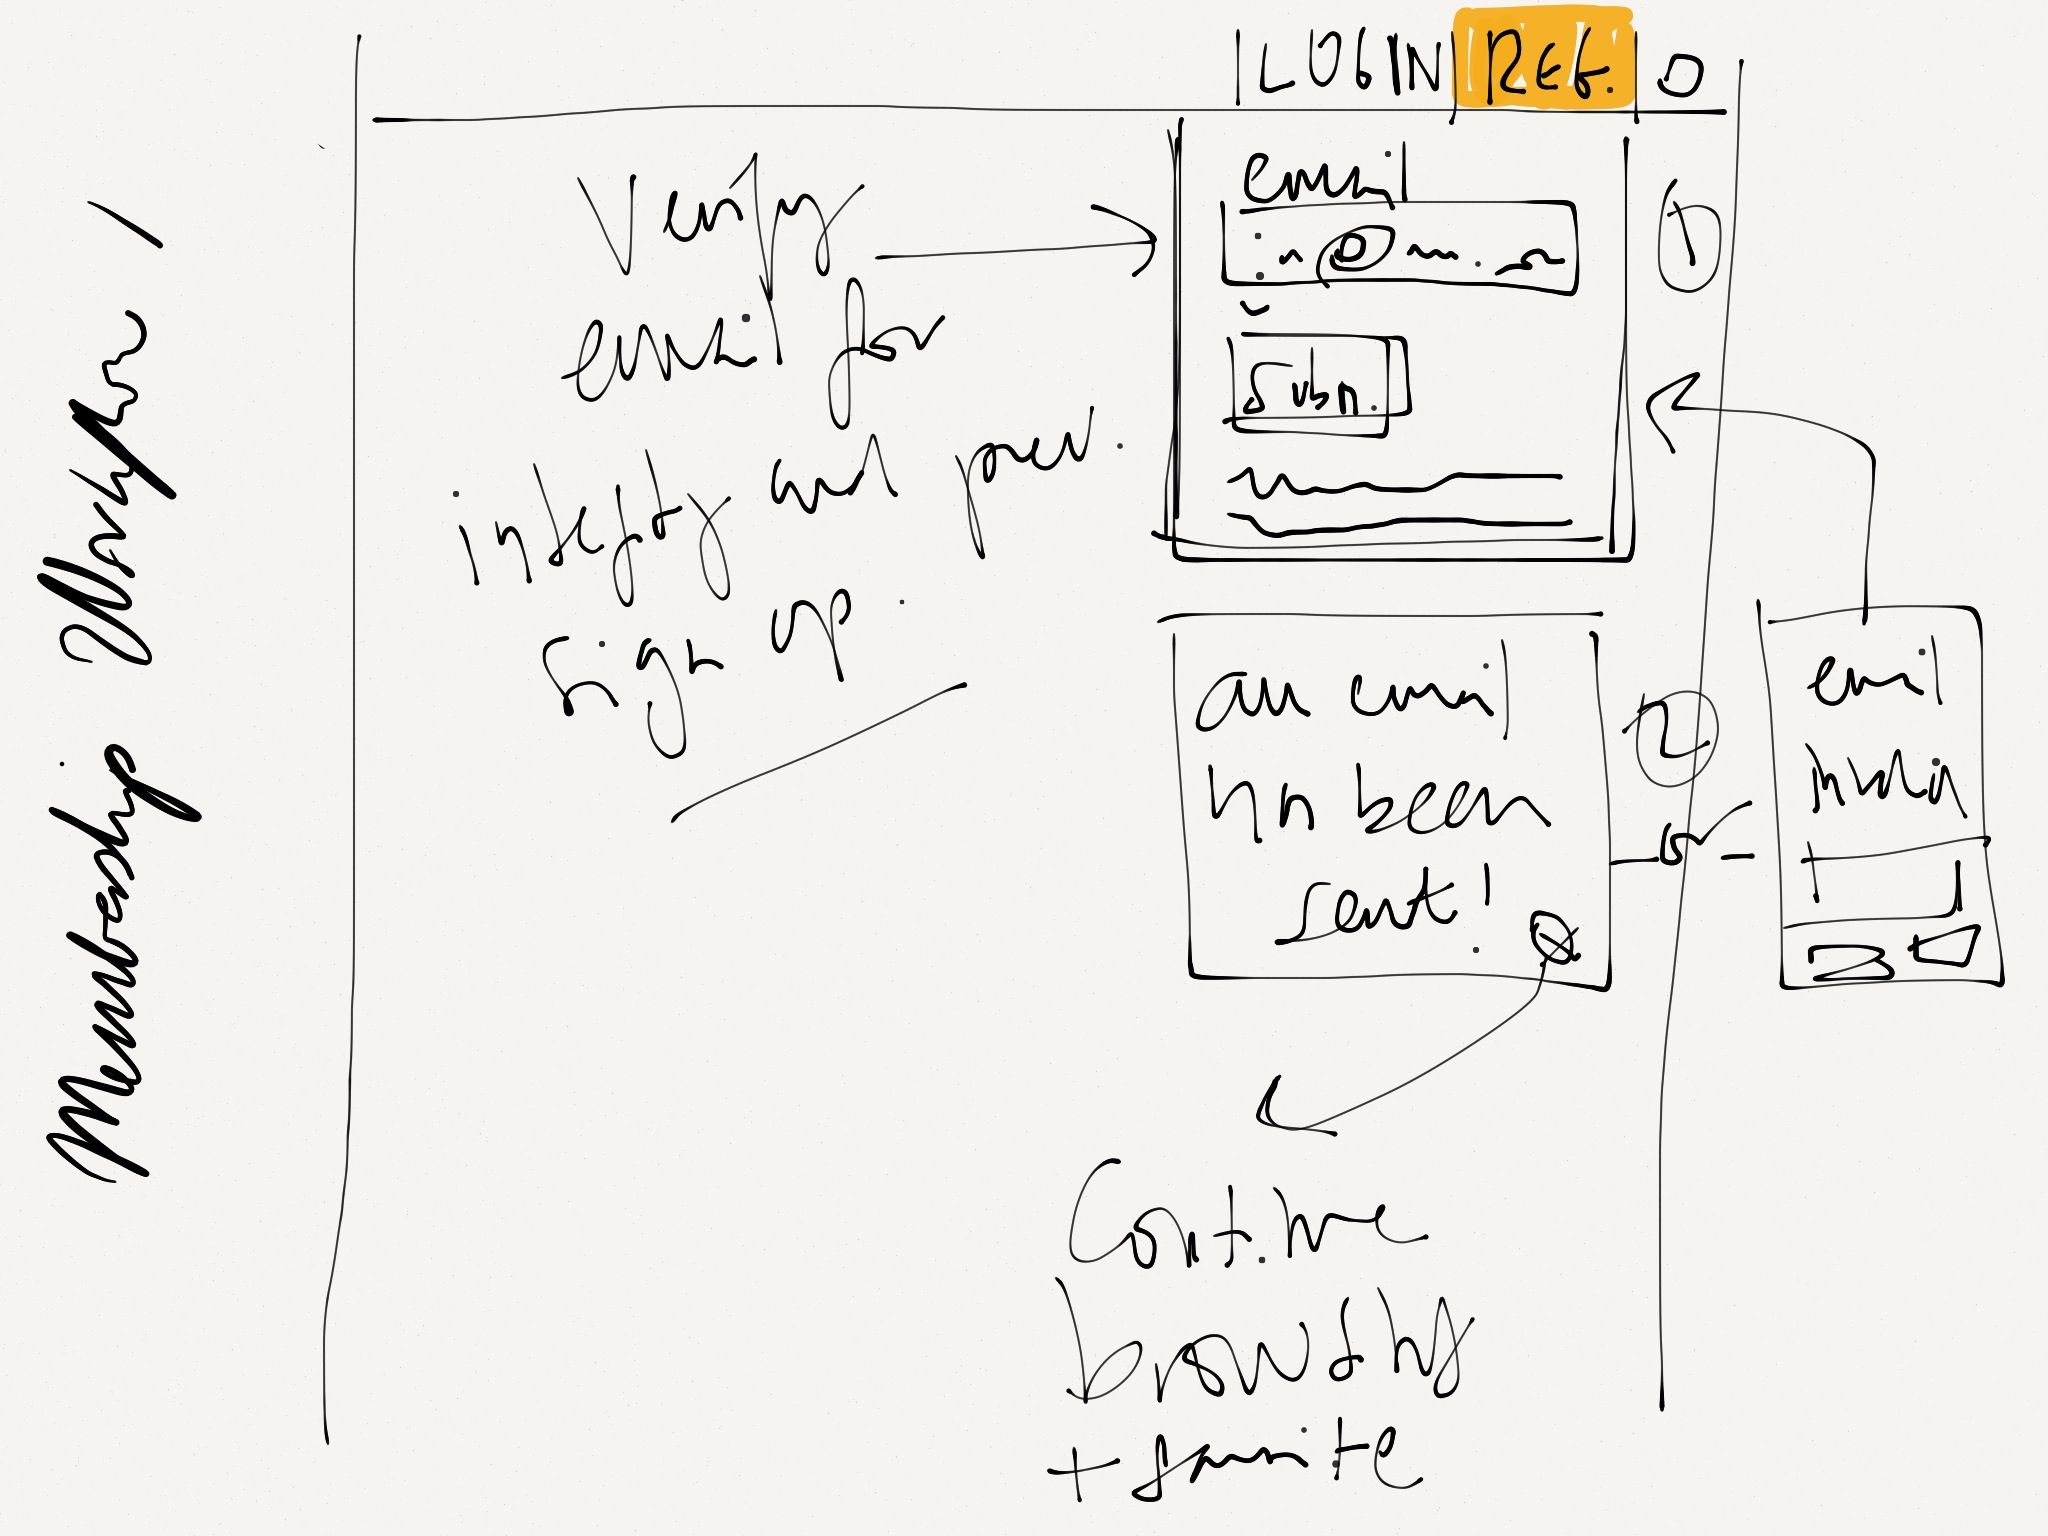 Membership Workflow 1
LOGIN REG. O
Verify
email for
integrity and prev.
sign up.
email
@
Subm.
1
an email
has been
sent!
2
or
email
invalid
Continue
browsing
+ favorite